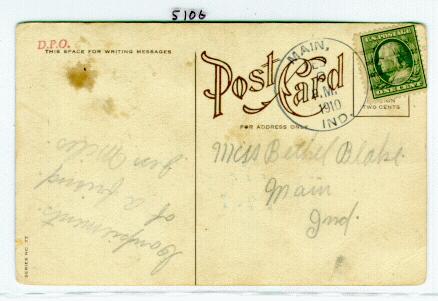 5106
D.P.O.
THIS SPACE FOR WRITING MESSAGES
Post Card
FOR ADDRESS ONLY
MAIN,
A.M.
1910
IND.
U.S. POSTAGE
ONE CENT
TWO CENTS
Miss Bethel Blake
Main
Ind.
Compliments
of a friend
Jim Mills
SERIES NO.